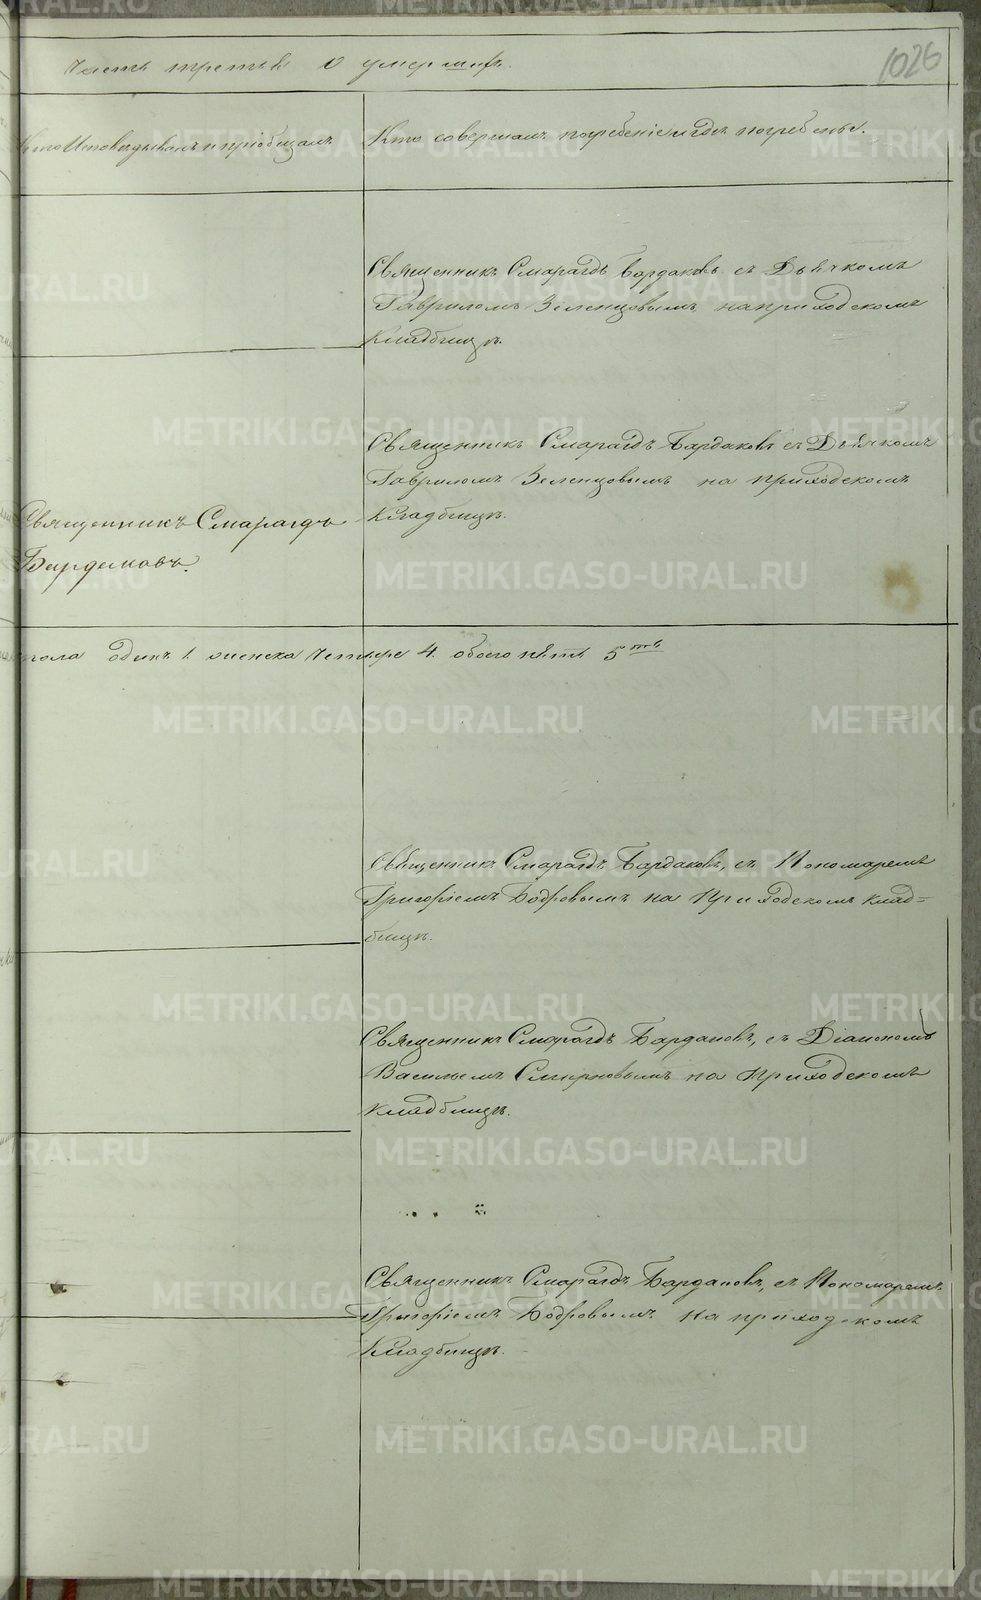 1026
Часть третья о умершихъ.
Кто Исповедывалъ и приобщалъ
Кто совершалъ погребеніе и где погребены.
Священникъ Смарагдъ Бардаковъ съ Дьячкомъ
Гавриломъ Зеленцовымъ на приходскомъ
Кладбищѣ.
Священникъ Смарагдъ Бардаковъ съ Дьячкомъ
Гавриломъ Зеленцовымъ на приходскомъ
Кладбищѣ.
Священникъ Смарагдъ
Бардаковъ.
пола одинъ 1. женска четыре 4. обоего пять 5ть
Священникъ Смарагдъ Бардаковъ, съ Пономаремъ
Григоріемъ Бодровымъ на Приходскомъ клад=
бищѣ.
Священникъ Смарагдъ Бардаковъ, съ Діакономъ
Васильемъ Смирновымъ на Приходскомъ
кладбищѣ.
Священникъ Смарагдъ Бардаковъ, съ Пономаремъ
Григоріемъ Бодровымъ на приходскомъ
Кладбищѣ.
METRIKI.GASO-URAL.RU